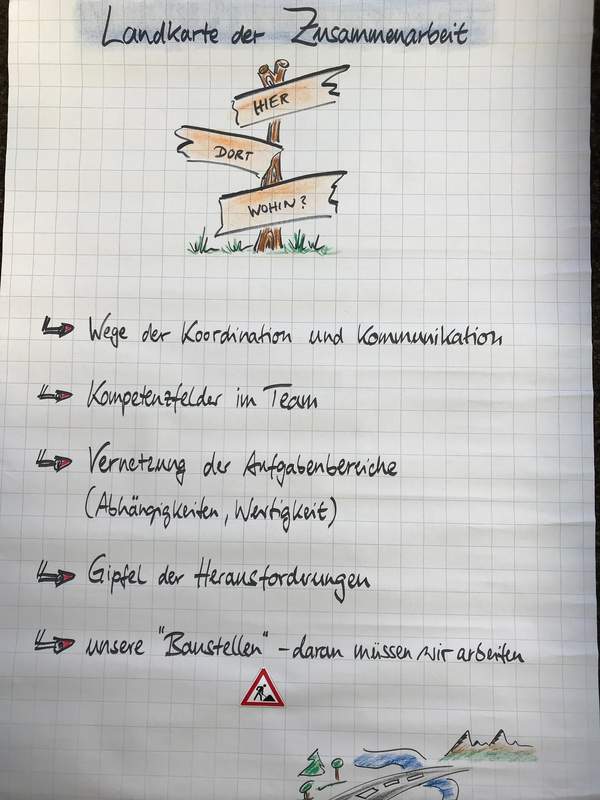 Landkarte der Zusammenarbeit
HIER
DORT
WOHIN?
Wege der Koordination und Kommunikation
Kompetenzfelder im Team
Vernetzung der Aufgabenbereiche
(Abhängigkeiten, Wertigkeit)
Gipfel der Herausfordrungen
unsere "Baustellen" - daran müssen wir arbeiten